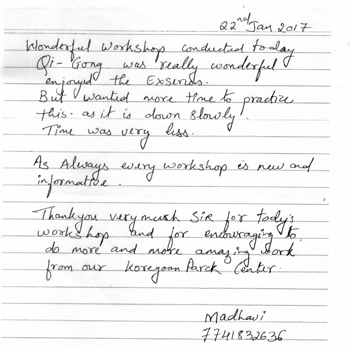 22nd Jan 2017
Wonderful workshop conducted today
Qi-Gong was really wonderful
enjoyed the Exseries.
But wanted more time to practice
this. as it is down slowly.
Time was very less.
As Always every workshop is new and
informative.
Thankyou very much Sir for tody's
workshop and for encouraging to
do more and more amazing work
from our Koregoan Parck Center.
Madhavi
7741832636